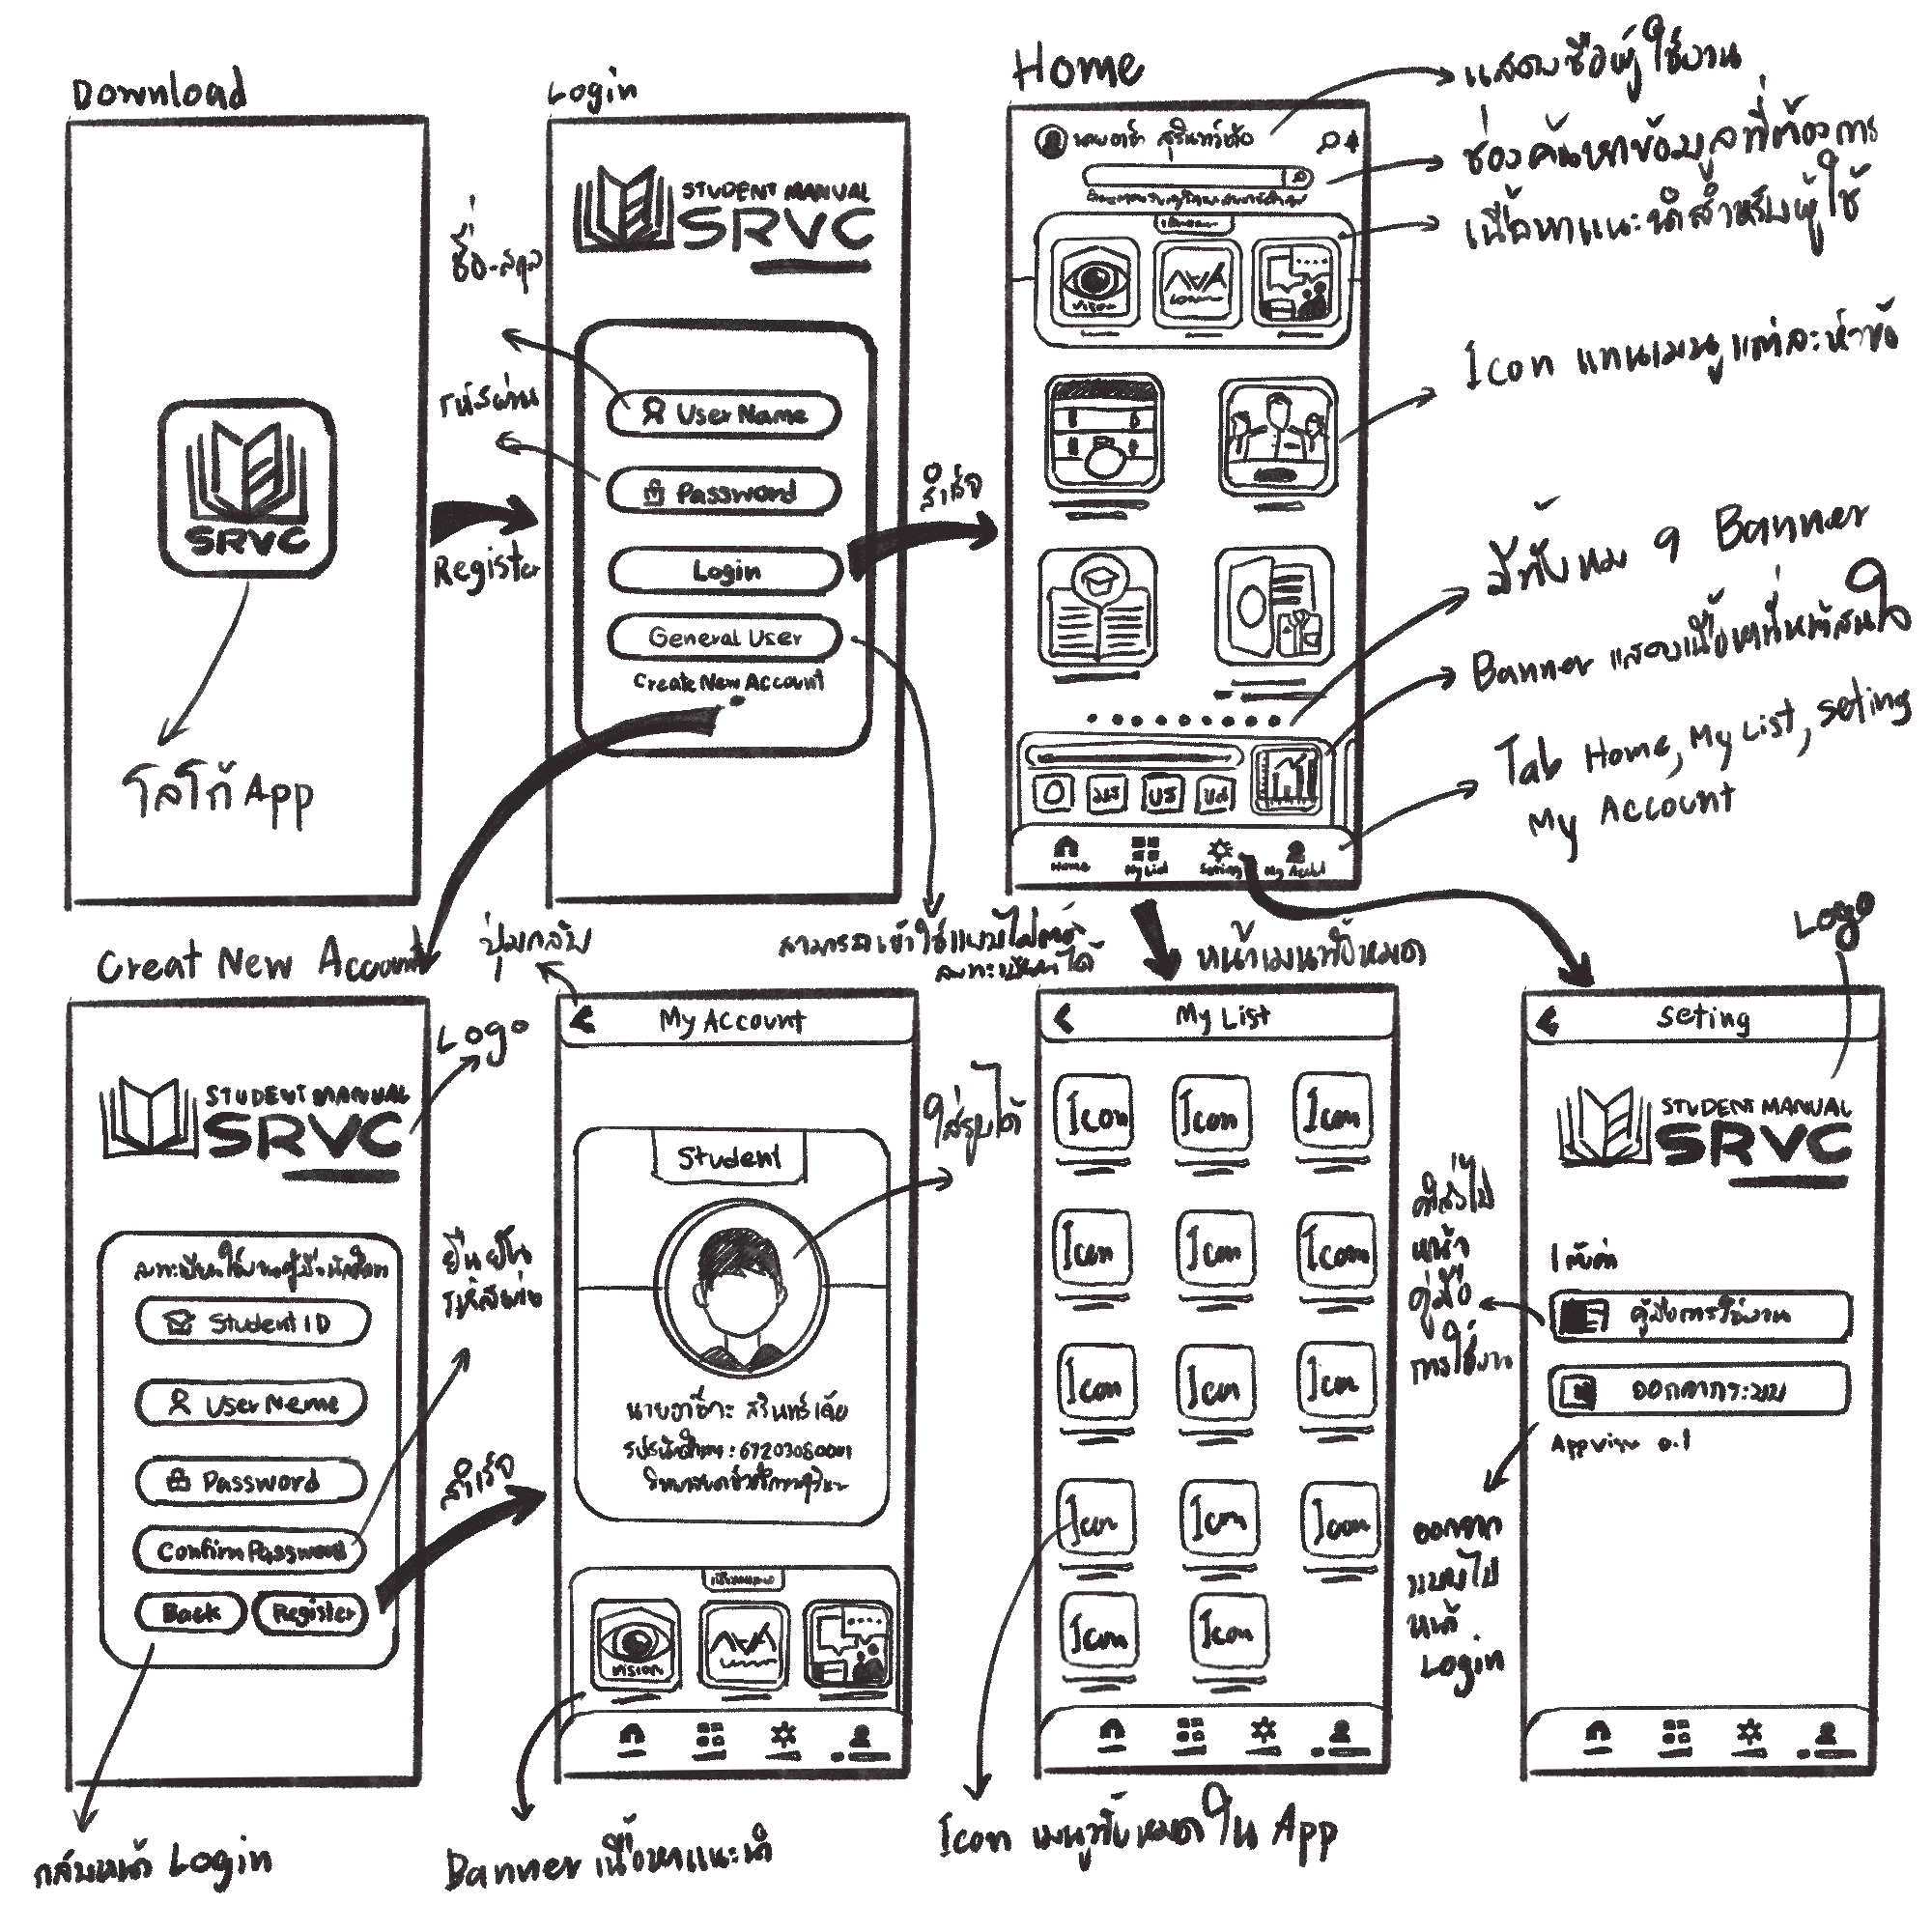 Download
SRVC
โลโก้ App
Register
Login
STUDENT MANUAL
SRVC
ชื่อ-สกุล
รหัสผ่าน
User Name
Password
Login
General User
Create New Account
สำเร็จ
สามารถเข้าใช้แบบไม่ต้อง
ลงทะเบียนได้
Home
แสดงชื่อผู้ใช้งาน
ช่องค้นหาข้อมูลที่ต้องการ
เนื้อหาแนะนำสำหรับผู้ใช้
Vision
Icon แทนเมนูแต่ละหัวข้อ
มีทั้งหมด 9 Banner
Banner แสดงเนื้อหาที่น่าสนใจ
Tab Home, My List, Seting
My Account
Home
My List
Seting
หน้าเมนูทั้งหมด
Creat New Account
Logo
STUDENT MANUAL
SRVC
Student ID
User Neme
Password
Confirm Password
Back
Register
ยืนยัน
รหัสผ่าน
สำเร็จ
กลับหน้า Login
ปุ่มกลับ
My Account
Student
ใส่รูปได้
Vision
Banner เนื้อหาแนะนำ
My List
Icon
Icon
Icon
Icon
Icon
Icon
Icon
Icon
Icon
Icon
Icon
Icon
Icon
Icon
Icon เมนูทั้งหมดใน App
Logo
Seting
STUDENT MANUAL
SRVC
คู่มือการใช้งาน
ออกจากระบบ
หน้า
คู่มือ
การใช้งาน
ออกจาก
ระบบไป
หน้า
Login